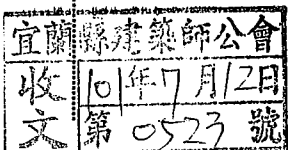 宜蘭縣建築師公會
收文
101年7月12日
第0523號